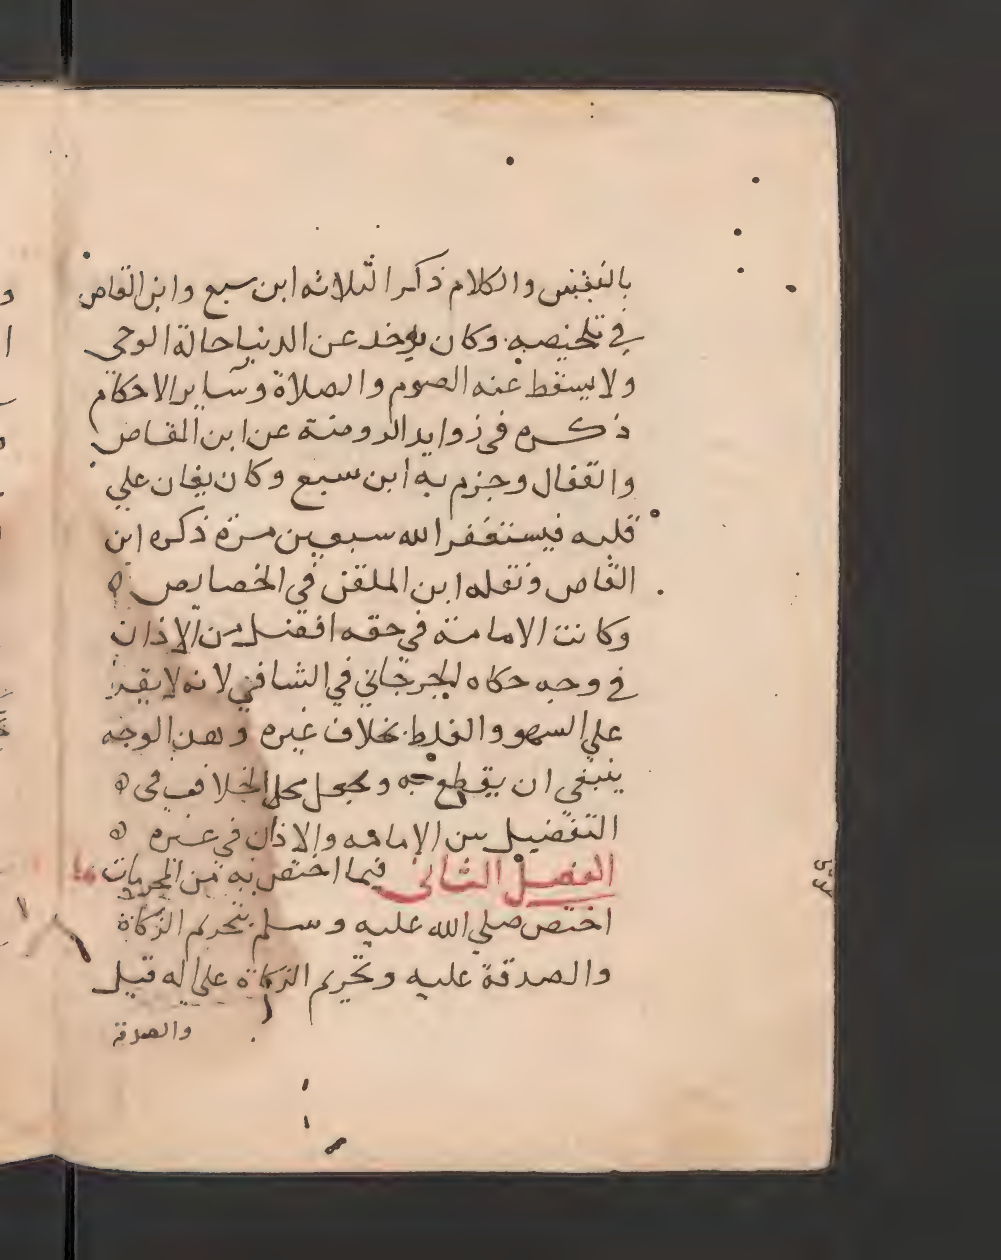 بالنفس والكلام ذكر الثلاثه ابن سبع وابن القاص
في تلخيصه وكان يوخد عن الدنيا حالة الوحى
ولا يسقط عنه الصوم والصلاة وساير الاحكام
ذكره فى زوايد الروضة عن ابن القاص
والقفال وجزم به ابن سبع وكان يغان علي
قلبه فيستغفر الله سبعين مرة ذكره ابن
القاص ونقله ابن الملقن في الخصايص ه
وكانت الامامة فى حقه افضل من الاذان
في وجه حكاه الجرجاني في الشافي لانه لا يقر
علي السهو والغلط بخلاف غيره وهذا الوجه
ينبغي ان يقطع به ويجعل محل الخلاف فى ه
التفضيل بين الامامه والاذان فى غيره ه
الفصل الثانى فيما اختص به من المحرمات
اختص صلي الله عليه وسلم بتحريم الزكاة
والصدقة عليه وتحريم الزكاة على اله قيل
والصدقة